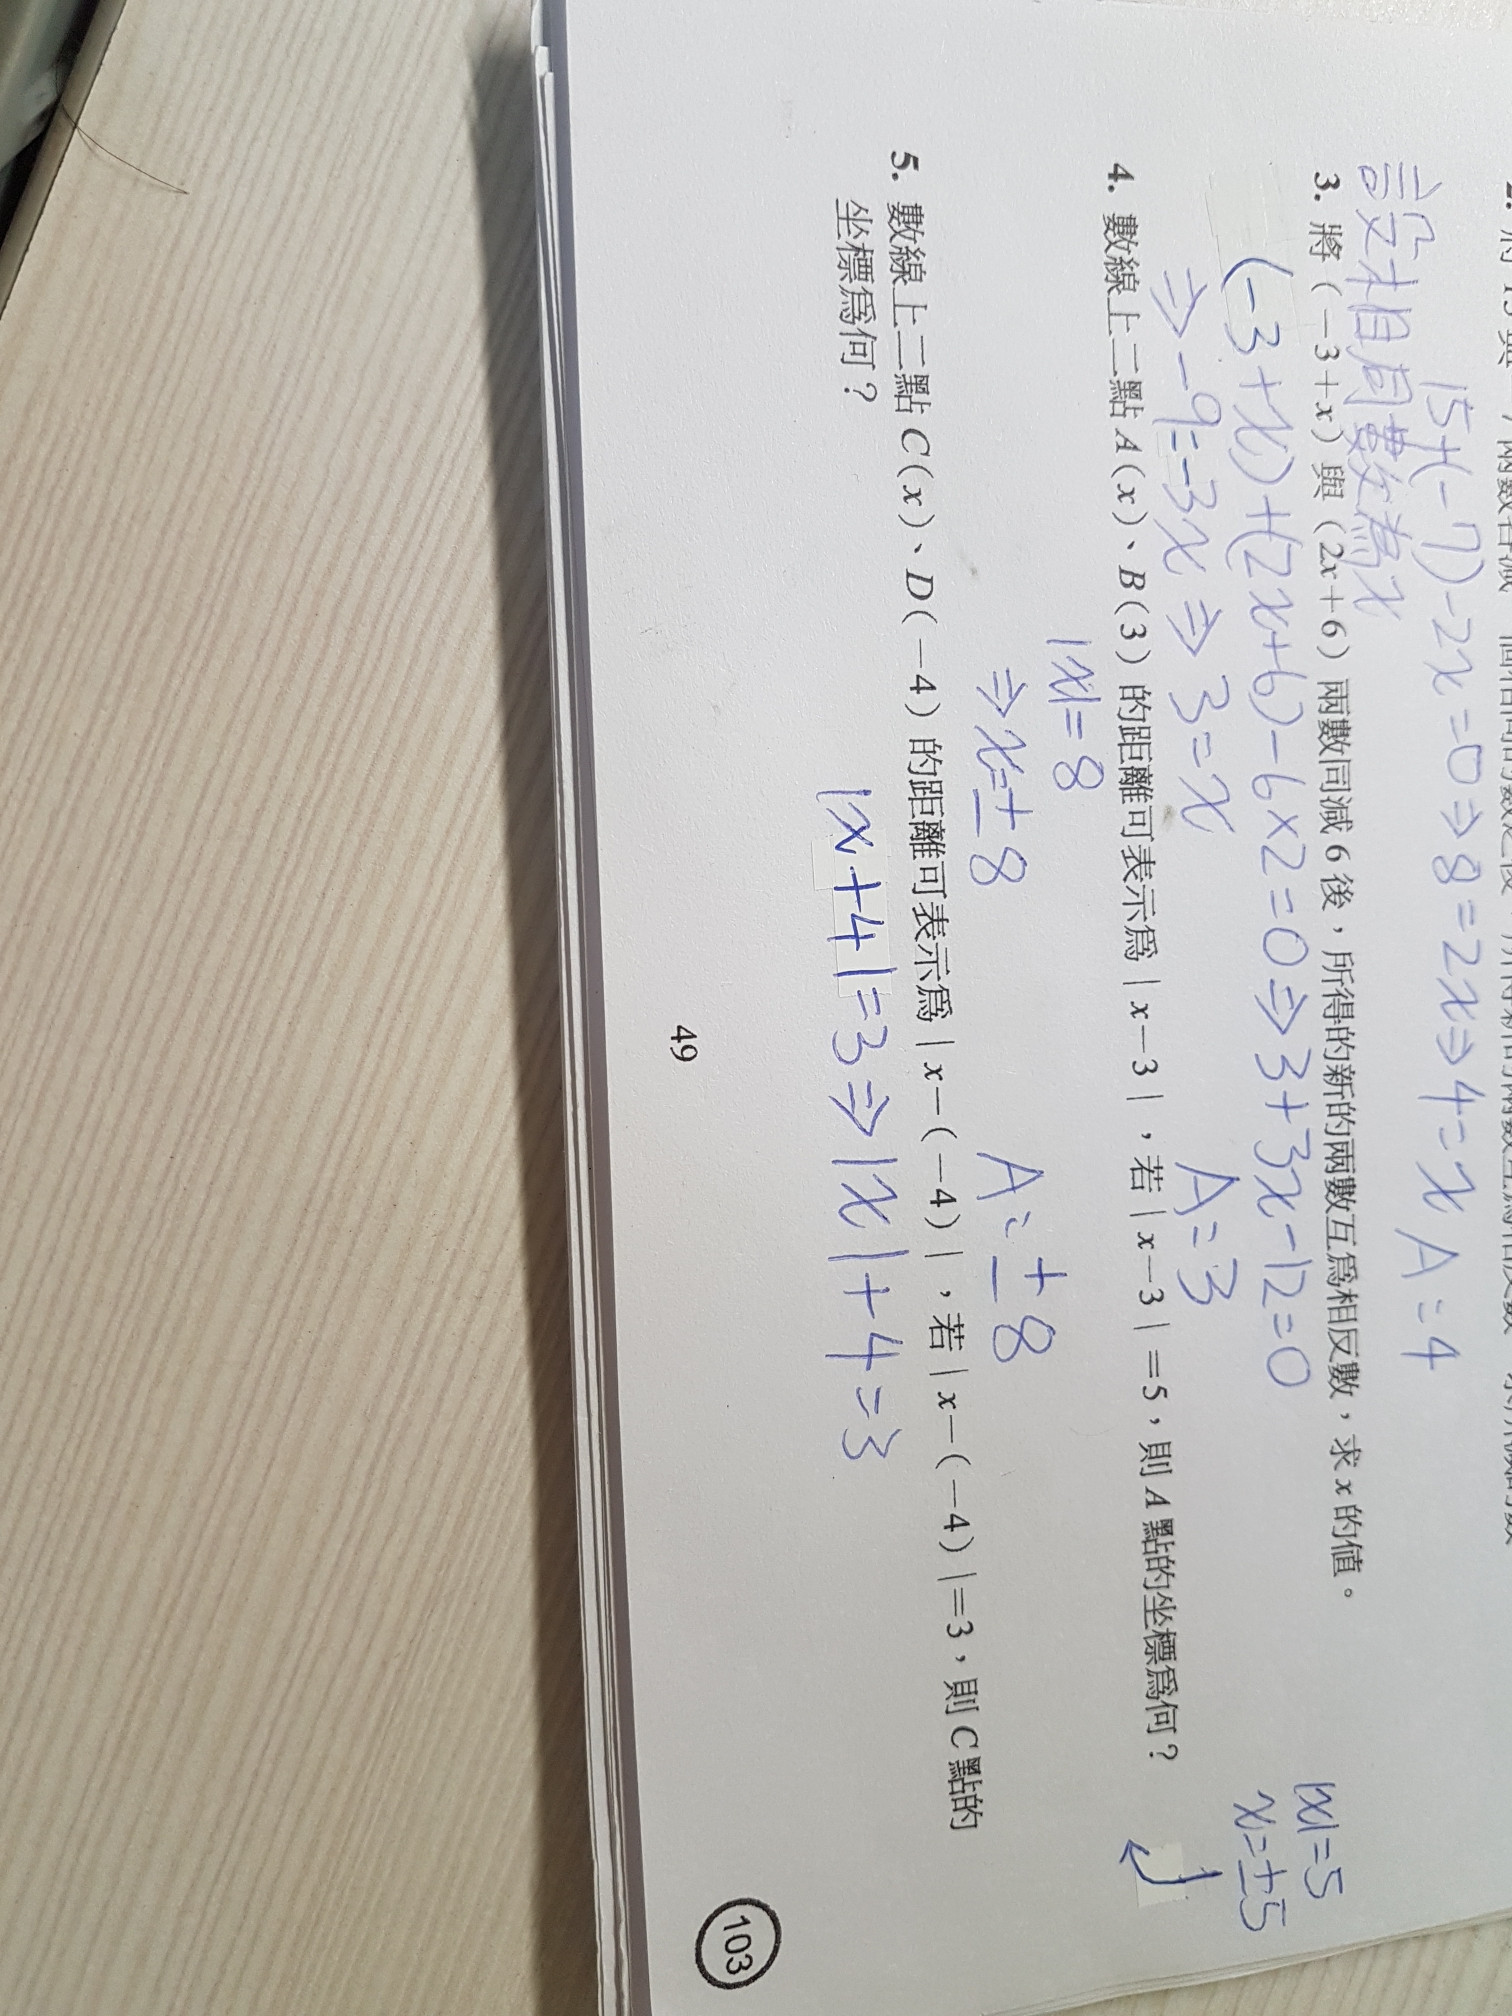 15+(-7)-2x=0⇒8=2x⇒4=x A=4
設相同數為x
3. 將(-3+x)與(2x+6)兩數同減6後,所得的新的兩數互爲相反數,求x的值。
(-3+x)+(2x+6)-6×2=0⇒3+3x-12=0
⇒-9=-3x⇒3=x A=3
|x|=5
x=±5
4. 數線上二點A(x)、B(3)的距離可表示爲|x-3|,若|x-3|=5,則A點的坐標爲何?
|x|=8
⇒x=±8 A=±8
5. 數線上二點C(x)、D(-4)的距離可表示爲|x-(-4)|,若|x-(-4)|=3,則C點的
坐標爲何?
|x+4|=3⇒|x|+4=3
49
103